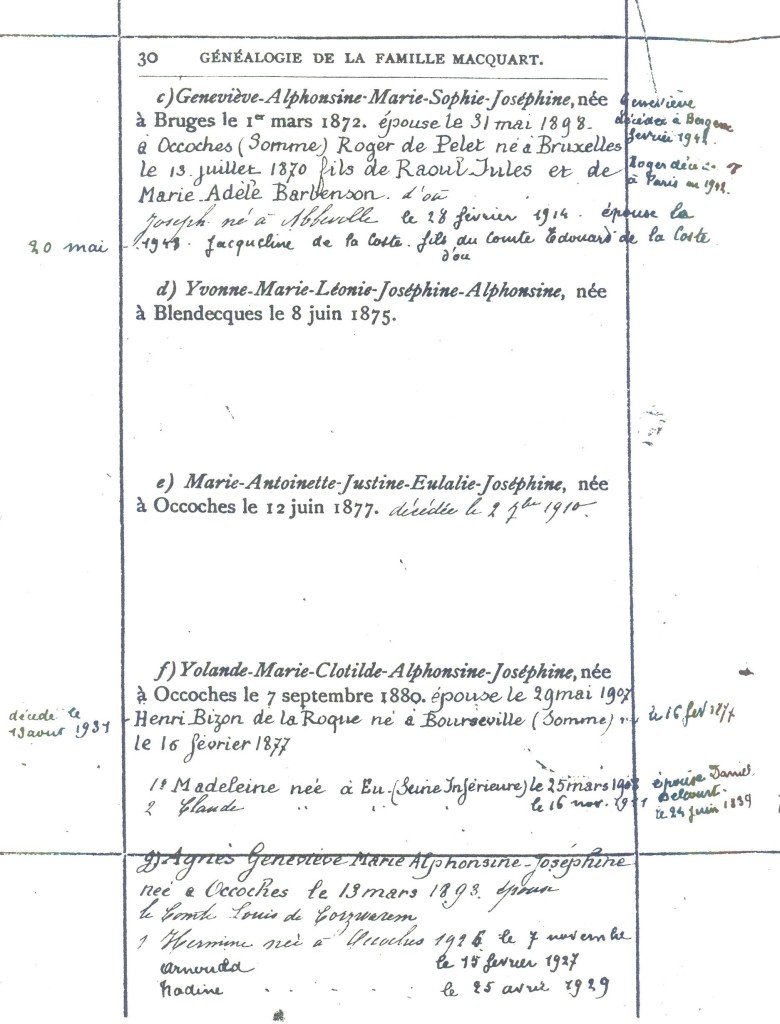 30 GÉNÉALOGIE DE LA FAMILLE MACQUART.
c) Geneviève-Alphonsine-Marie-Sophie-Joséphine, née
à Bruges le 1er mars 1872. épouse le 31 mai 1898.
à Occoches (Somme) Roger de Pelet né à Bruxelles
le 13 juillet 1870 fils de Raoul Jules et de
Marie Adèle Barbenson. d'où
Geneviève
décédée à
fevrier
Roger
à Paris en
Joseph né à Abbeville le 28 février 1914. épouse la
20 mai
Jacqueline de la Coste. fils du Comte Edouard de la Coste
d'ou
d) Yvonne-Marie-Léonie-Joséphine-Alphonsine, née
à Blendecques le 8 juin 1875.
e) Marie-Antoinette-Justine-Eulalie-Joséphine, née
à Occoches le 12 juin 1877. décédée le 2 7bre 1910.
f) Yolande-Marie-Clotilde-Alphonsine-Joséphine, née
à Occoches le 7 septembre 1880. épouse le 29 mai 1907
décédé le
13 aout 1931
Henri Bizon de la Roque né à Bourseville (Somme)
le 16 fev 1877
le 16 février 1877
1º Madeleine née à Eu (Seine Inférieure) le 25 mars
épouse Daniel
Delcourt.
le 24 juin 1939
2 Claude " " le 16 nov.
g) Agnès Geneviève Marie Alphonsine-Joséphine
née à Occoches le 13 mars 1893. épouse
le Comte Louis de Corswarem
1 Hermine née à Occoches 1926 le 7 novembre
Arnould le 15 fevrier 1927
Nadine . . . . . le 25 avril 1929